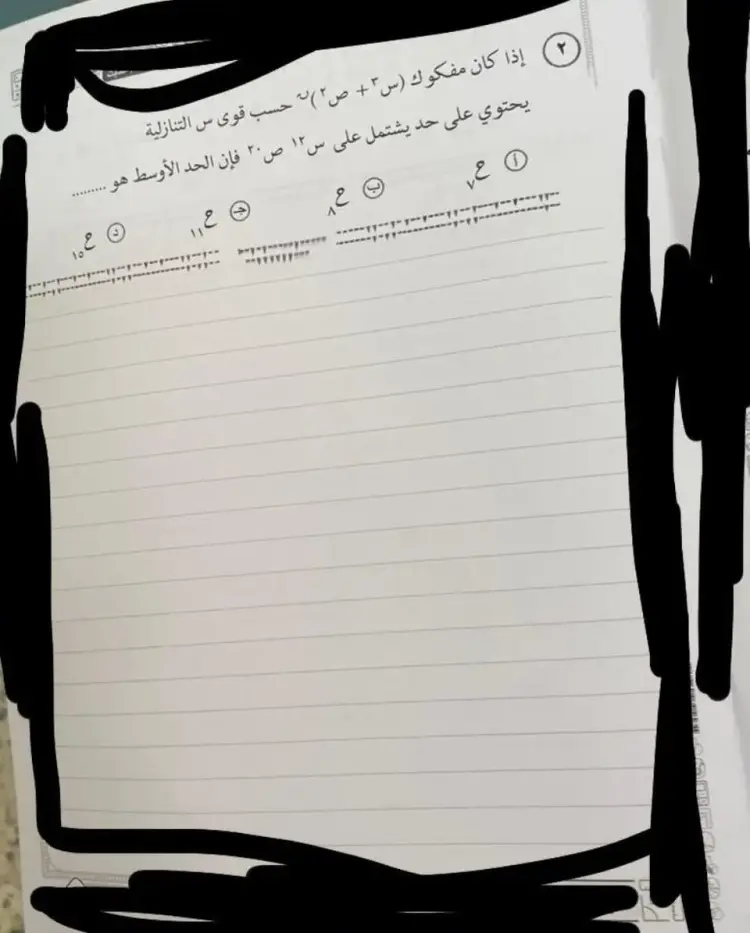 ٢ إذا كان مفكوك (س٣ + ص٢)ن حسب قوى س التنازلية
يحتوي على حد يشتمل على س١٢ ص٢٠ فإن الحد الأوسط هو .........
أ ح٧ ب ح٨ جـ ح١١ د ح١٥